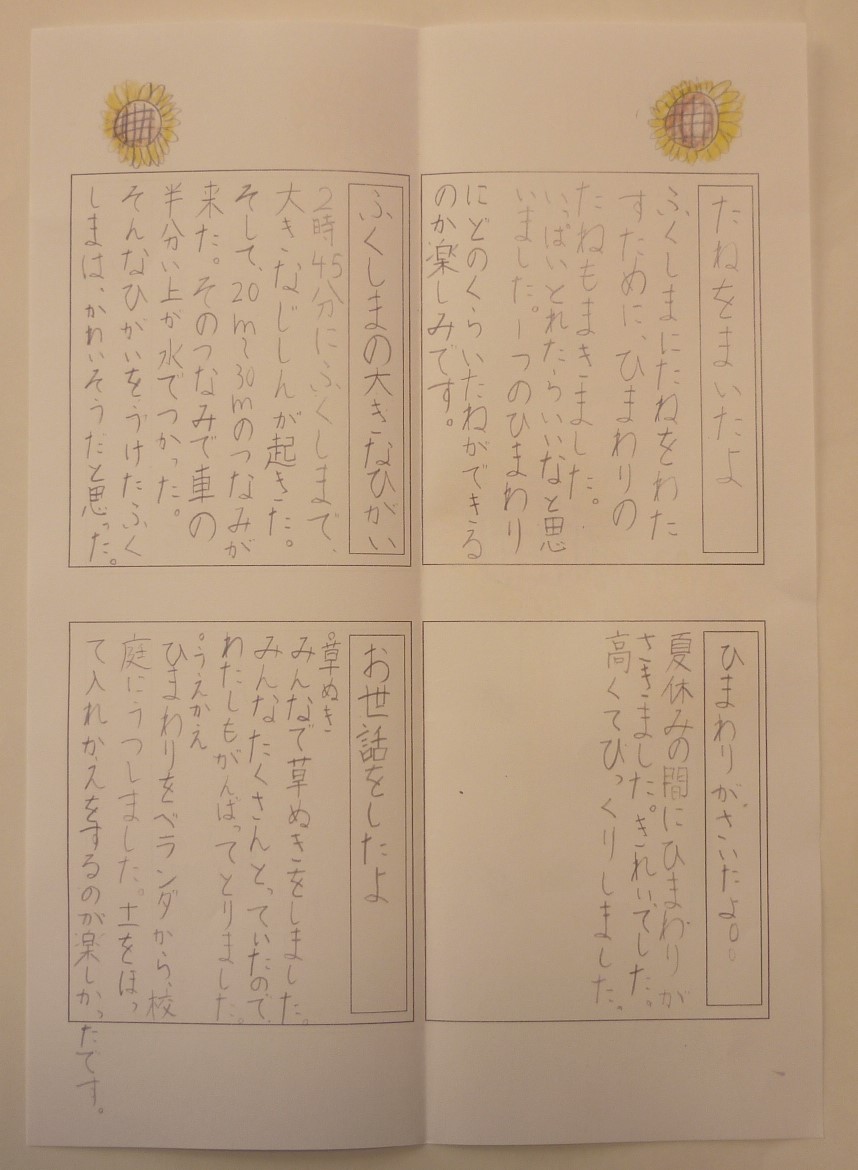 たねをまいたよ
ふくしまにたねをわた
すために、ひまわりの
たねもまきました。
いっぱいとれたらいいなと思
いました。1つのひまわり
にどのくらいたねができる
のか楽しみです。
ふくしまの大きなひがい
2時45分にふくしまで、
大きなじしんが起きた。
そして、20m~30mのつなみが
来た。そのつなみで車の
半分い上が水でつかった。
そんなひがいをうけたふく
しまは、かわいそうだと思った。
ひまわりがさいたよ。。
夏休みの間にひまわりが
さきました。きれいでした。
高くてびっくりしました。
お世話をしたよ
。草ぬき
みんなで草ぬきをしました。
みんなたくさんとっていたので、
わたしもがんばってとりました。
。うえかえ
ひまわりをベランダから、校
庭にうつしました。土をほっ
て入れかえをするのが楽しかったです。